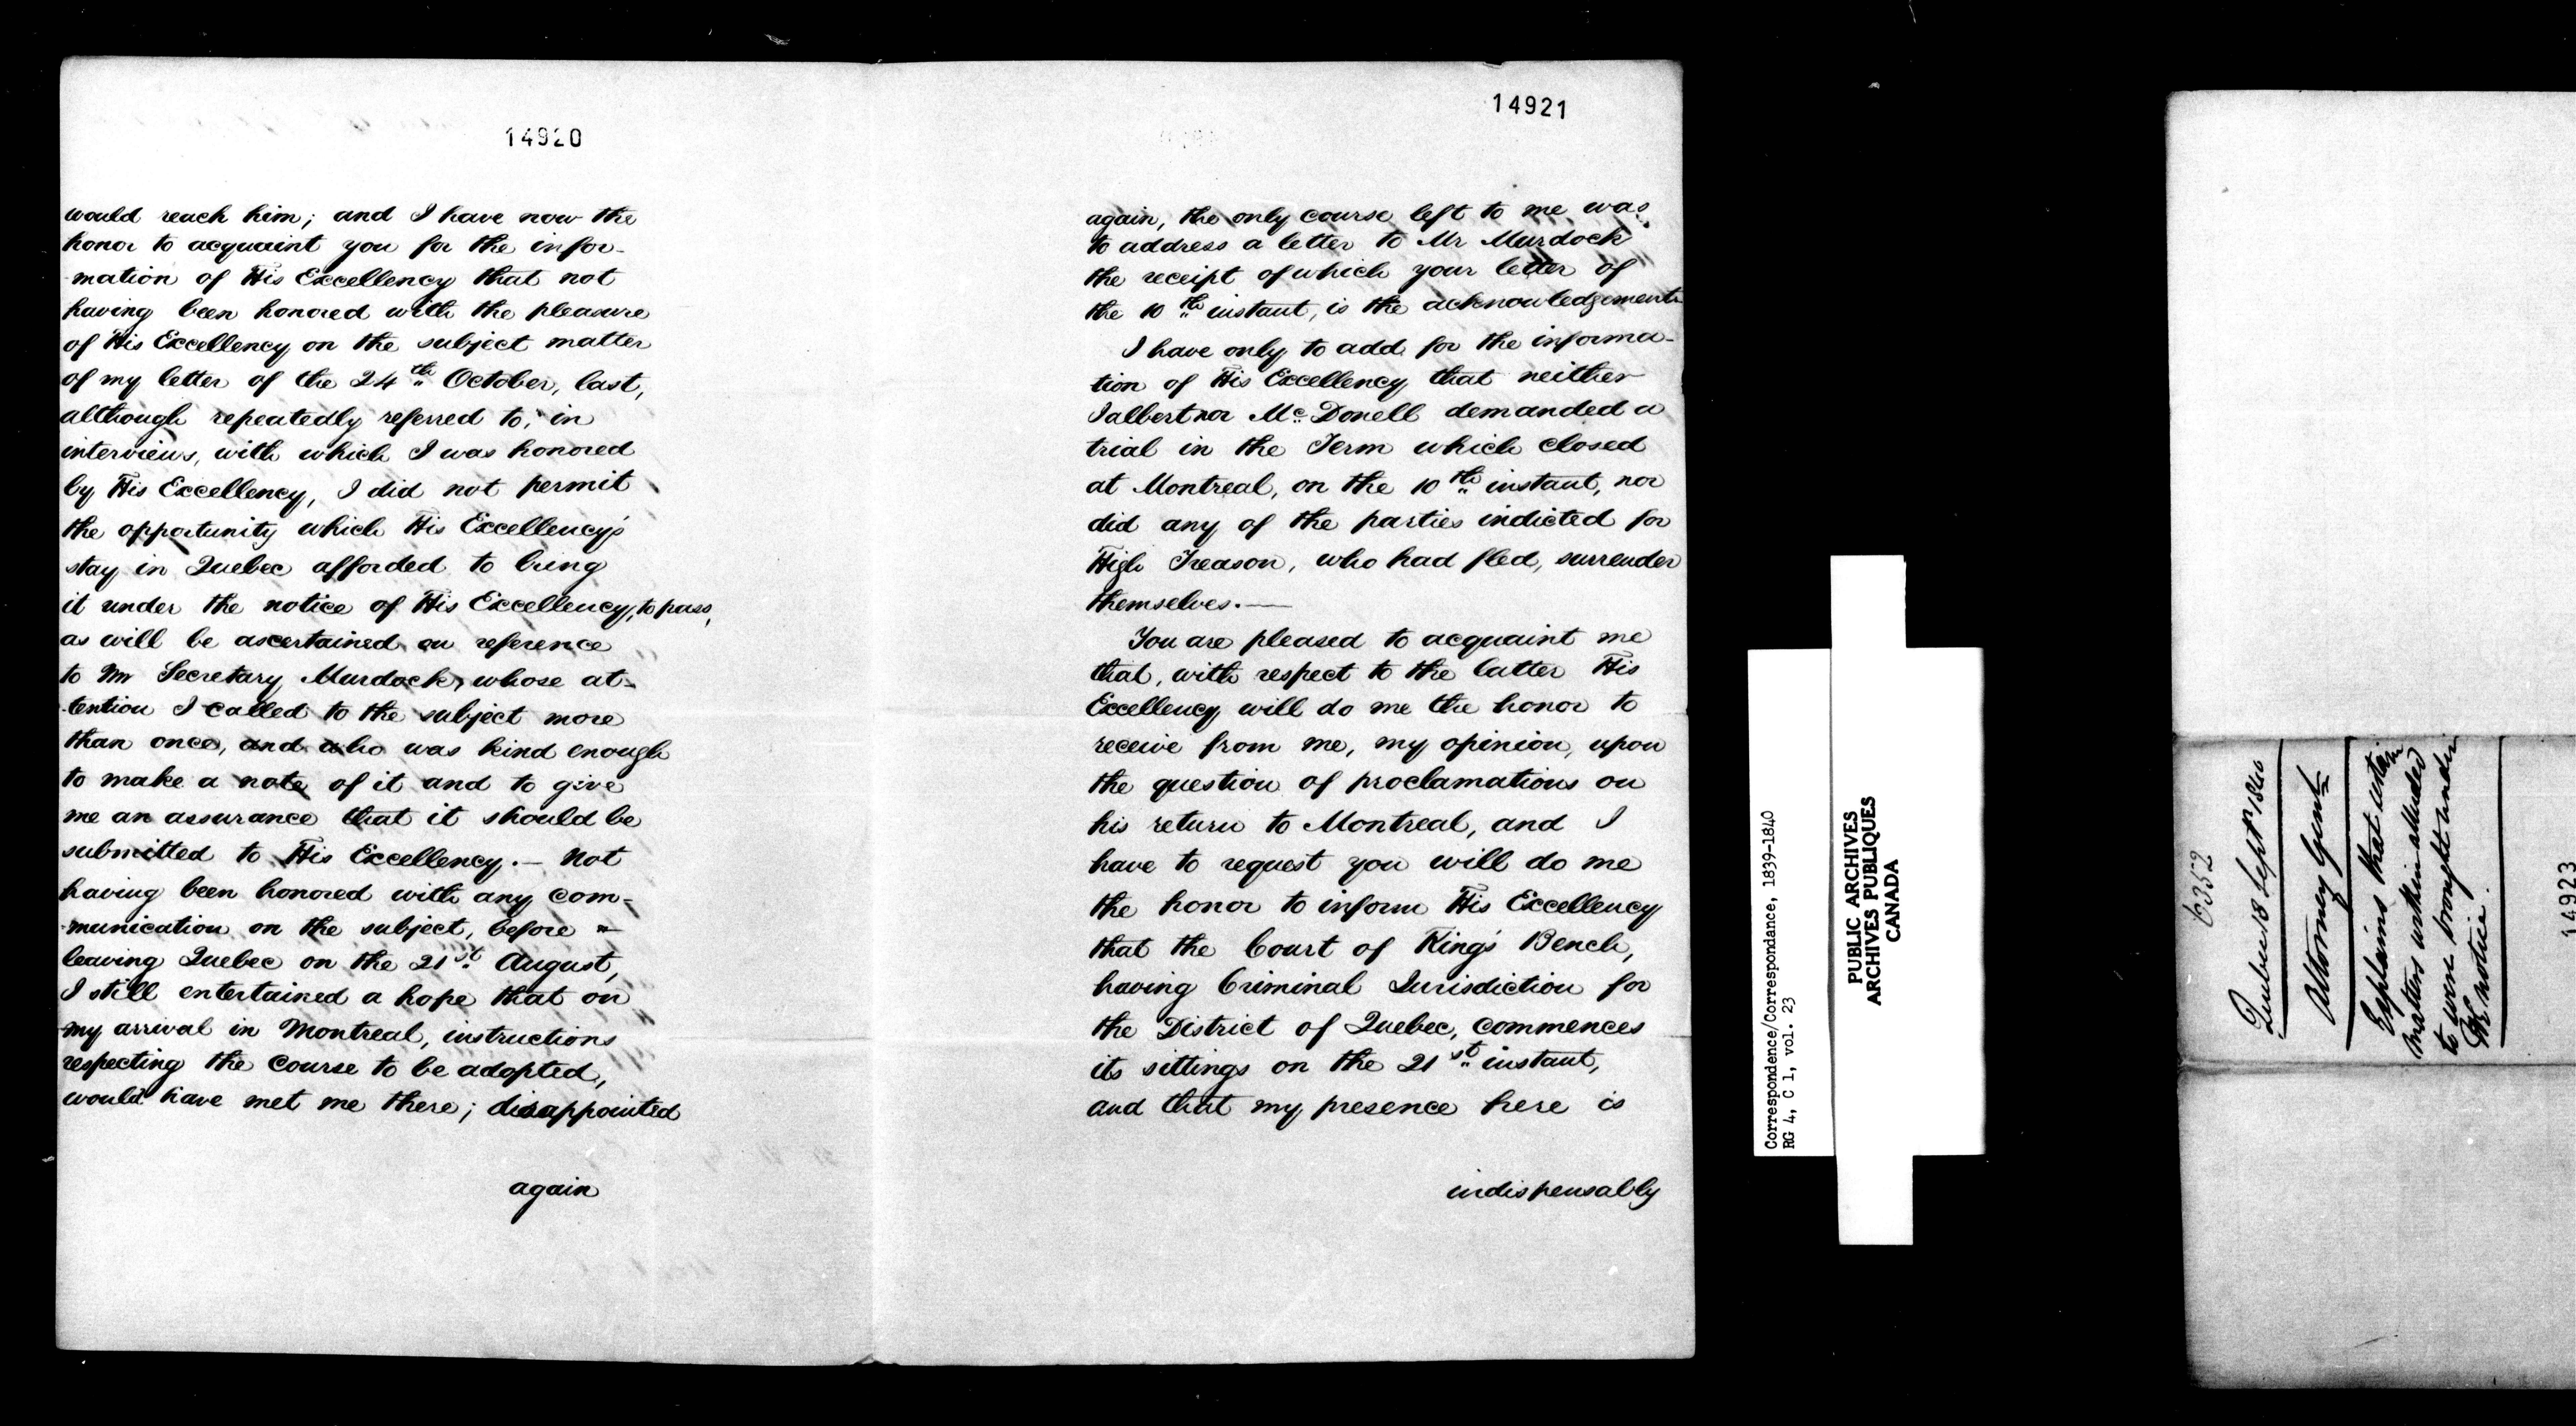 14920
would reach him; and I have now the
honor to acquaint you for the infor-
-mation of His Excellency that not
having been honored with the pleasure
of His Excellency on the subject matter
of my letter of the 24th October, last,
although repeatedly referred to, in
interviews, with which I was honored
by His Excellency, I did not permit
the opportunity which His Excellency's
stay in Quebec afforded to bring
it under the notice of His Excellency, to pass,
as will be ascertained on reference
to Mr Secretary Murdock, whose at-
-tention I called to the subject more
than once, and who was kind enough
to make a note of it and to give
me an assurance that it should be
submitted to His Excellency. — Not
having been honored with any com-
-munication on the subject, before
leaving Quebec on the 21st August,
I still entertained a hope that on
my arrival in Montreal, instructions
respecting the course to be adopted,
would have met me there; disappointed
again
14921
again, the only course left to me was
to address a letter to Mr Murdock
the receipt of which your letter of
the 10th instant, is the acknowledgement
I have only to add for the informa-
tion of His Excellency that neither
Jalbert nor McDonell demanded a
trial in the Term which closed
at Montreal, on the 10th instant, nor
did any of the parties indicted for
High Treason, who had fled, surrender
themselves.—
You are pleased to acquaint me
that, with respect to the latter His
Excellency will do me the honor to
receive from me, my opinion, upon
the question of proclamations on
his return to Montreal, and I
have to request you will do me
the honor to inform His Excellency
that the Court of King's Bench,
having Criminal Jurisdiction for
the District of Quebec, commences
its sittings on the 21st instant,
and that my presence here is
indispensably
Correspondence/Correspondance, 1839-1840
RG 4, C 1, vol. 23
PUBLIC ARCHIVES
ARCHIVES PUBLIQUES
CANADA
6352
Quebec 18 Septr 1840
Attorney Genl
Explains that certain
matters within alluded
to were brought under
notice.
14923